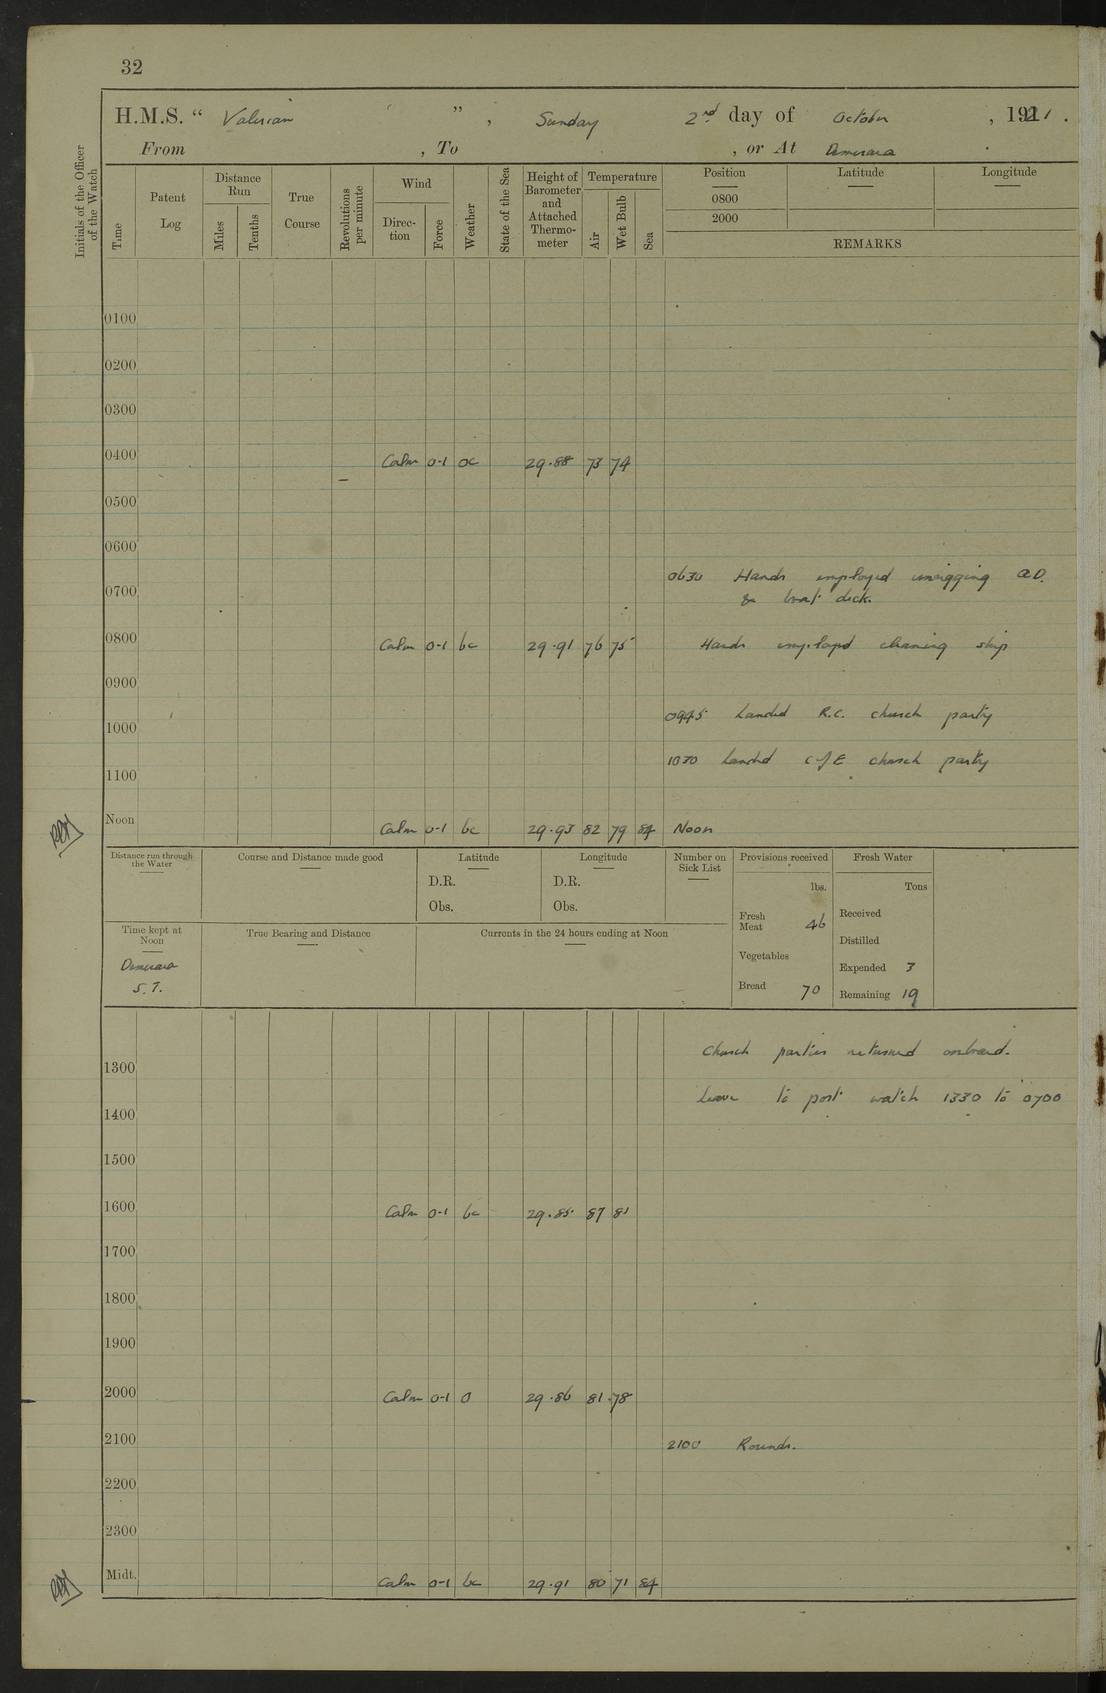 32
H.M.S. “ Valerian ” , Sunday 2nd day of October , 1921 .
From , To , or At Demerara .
Initials of the Officer of the Watch
Time
Patent Log
Distance Run
Miles
Tenths
True Course
Revolutions per minute
Wind
Direction
Force
Weather
State of the Sea
Height of Barometer and Attached Thermometer
Temperature
Air
Wet Bulb
Sea
Position
0800
2000
Latitude
Longitude
REMARKS
0100
0200
0300
0400 Calm 0-1 oc 29.88 73 74
0500
0600
0630 Hands employed unrigging Q.D.
0700 & boat deck.
0800 Calm 0-1 bc 29.91 76 75 Hands employed cleaning ship
0900
0945 Landed R.C. church party
1000
1030 Landed C of E church party
1100
Noon Calm 0-1 bc 29.93 82 79 84 Noon
Distance run through the Water
Course and Distance made good
Latitude
D.R.
Obs.
Longitude
D.R.
Obs.
Number on Sick List
Provisions received
lbs.
Fresh Meat 46
Vegetables
Bread 70
Fresh Water
Tons
Received
Distilled
Expended 3
Remaining 19
Time kept at Noon
Demerara
S.T.
True Bearing and Distance
Currents in the 24 hours ending at Noon
Church parties returned onboard.
1300
Leave to port watch 1330 to 0700
1400
1500
1600 Calm 0-1 bc 29.85 87 81
1700
1800
1900
2000 Calm 0-1 o 29.86 81 78
2100 2100 Rounds.
2200
2300
Midt. Calm 0-1 bc 29.91 80 71 84